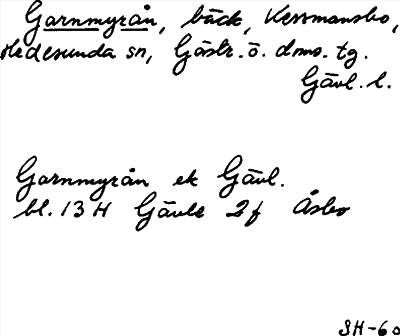 Garnmyrån, bäck, Kessmansbo,
Hedesunda sn, Gästr. ö. dms. tg.
Gävl. l.
Garnmyrån ek Gävl.
bl. 13 H Gävle 2f Åsbo
SH-60